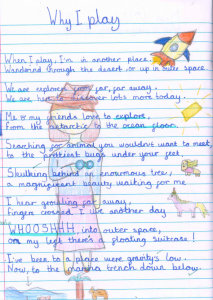 Why I play
When I play, I'm in another place.
Wandering through the desert, or up in outer space
We are explorers from far, far away.
We are here to discover lots more today.
Me or my friends love to explore,
From the antarctic to the ocean floor.
Searching for animal you wouldn't want to meet,
to the prettiest bugs under your feet.
Skulking behind an enormous tree,
a magnificent beauty waiting for me
I hear growling far away,
Fingers crossed I live another day
WHOOSHHH, into outer space,
on my left there's a floating suitcase!
I've been to a place were gravity's low.
Now, to the mariana trench down below.